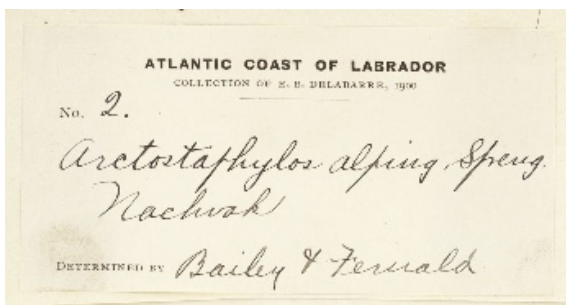 ATLANTIC COAST OF LABRADOR
COLLECTION OF E. B. DELABARRE, 1900
No. 2.
Arctostaphylos alpina, Spreng.
Nachvak
DETERMINED BY Bailey & Fernald